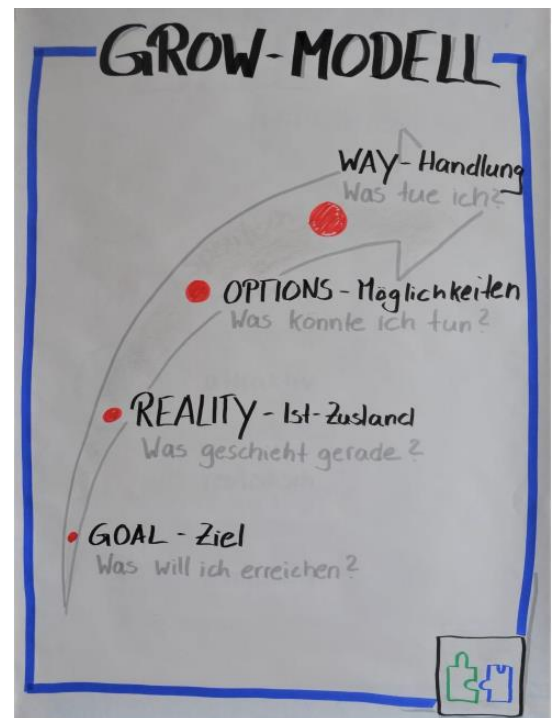 GROW-MODELL
WAY-Handlung
Was tue ich?
OPTIONS - Möglichkeiten
Was könnte ich tun?
REALITY - Ist-Zustand
Was geschieht gerade?
GOAL - Ziel
Was will ich erreichen?